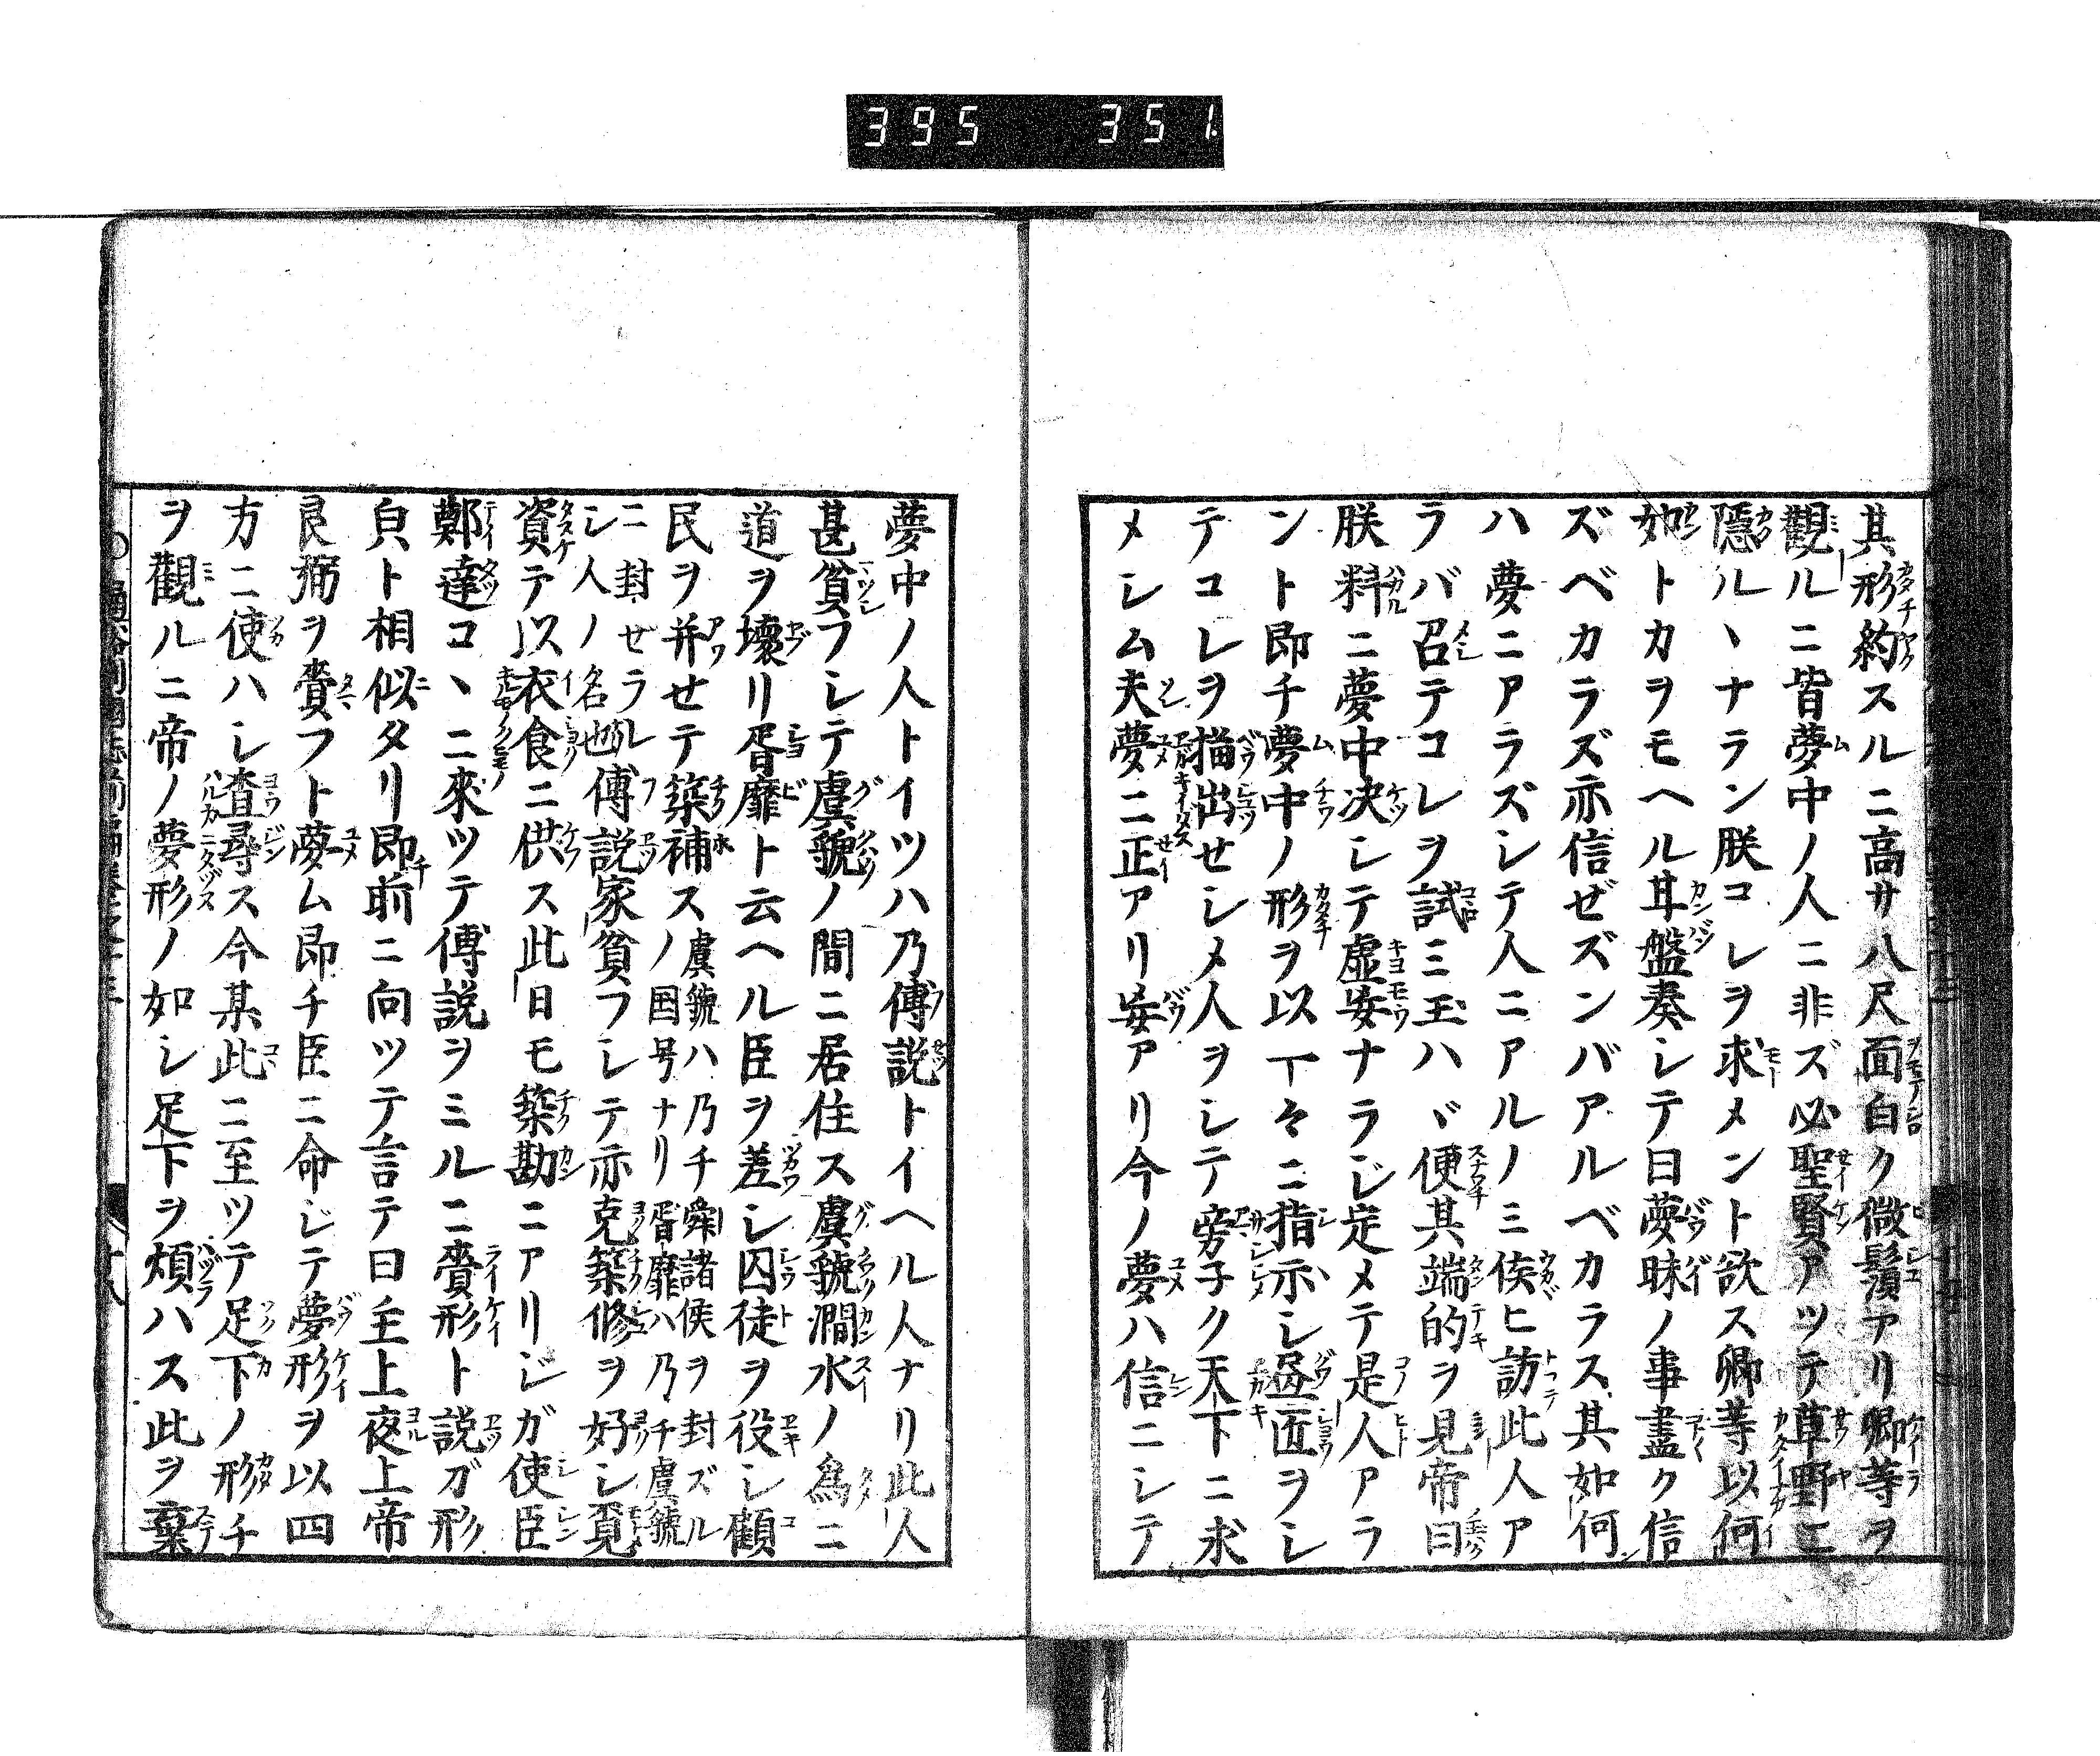 395 351
其形約スルニ高サ八尺面白ク微鬚アリ卿等ヲ
觀ルニ皆夢中ノ人ニ非ズ必聖賢アツテ草野ニ
隱ルヽナラン朕コレヲ求メント欲ス卿等以何
如トカヲモヘル甘盤奏シテ曰夢昧ノ事盡ク信
ズベカラズ亦信ゼズンバアルベカラス其如何
ハ夢ニアラズシテ人ニアルノミ俟ヒ訪此人ア
ラバ召テコレヲ試ミ玉ハヾ便其端的ヲ見帝曰
朕料ニ夢中决シテ虛妄ナラジ定メテ是人アラ
ント即チ夢中ノ形ヲ以丁々ニ指示シ畫匠ヲシ
テコレヲ描出セシメ人ヲシテ旁子ク天下ニ求
メシム夫夢ニ正アリ妄アリ今ノ夢ハ信ニシテ
夢中ノ人トイツハ乃傅説トイヘル人ナリ此人
甚貧フシテ虞虢ノ間ニ居住ス虞虢澗水ノ爲ニ
道ヲ壞リ胥靡ト云ヘル臣ヲ差シ囚徒ヲ役シ顧
民ヲ并せテ築補ス虞虢ハ乃チ舜諸侯ヲ封ズル
ノ国号ナリ胥靡ハ乃チ虞虢
ニ封ぜラレ
シ人ノ名也傅説家貧フシテ亦克築修ヲ好シ覓
資テ以衣食ニ供ス此日モ築勘ニアリシガ使臣
鄭達コヽニ來ツテ傅説ヲミルニ賚形ト説ガ形
貞ト相似タリ即前ニ向ツテ言テ曰主上夜上帝
良弼ヲ賚フト夢ム即チ臣ニ命ジテ夢形ヲ以四
方ニ使ハシ査尋ス今某此ニ至ツテ足下ノ形チ
ヲ觀ルニ帝ノ夢形ノ如シ足下ヲ煩ハス此ヲ棄